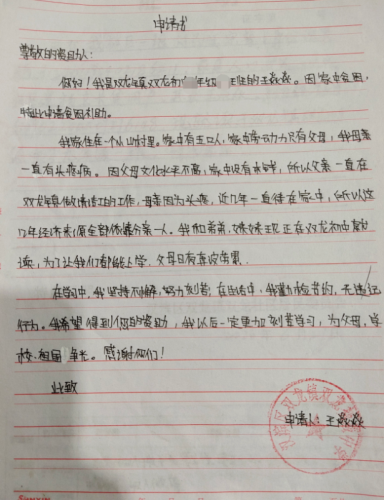 申请书
尊敬的资助人：
您好！我是双龙镇双龙初 年级 班的王焱焱。因家中贫困，
特此申请贫困补助。
我家住在一个小山村里。家中有五口人，家中劳动力只有父母，我母亲
一直有长疾病。因父母文化水平不高，家中没有 ，所以父亲一直在
双龙镇做 的工作，母亲因为长疾，近几年一直待在家中，所以这
几年经济来源全部依靠父亲一人。我和弟弟、妹妹现正在双龙初中就
读，为了让我们都能上学，父母日夜 劳累。
在学习中，我坚持不懈，努力刻苦；在生活中，我勤检省的，无违记
行为。我希望得到您的资助，我以后一定更加刻苦学习，为父母，学
校、祖国争光。感谢你们！
此致
申请人：王焱焱